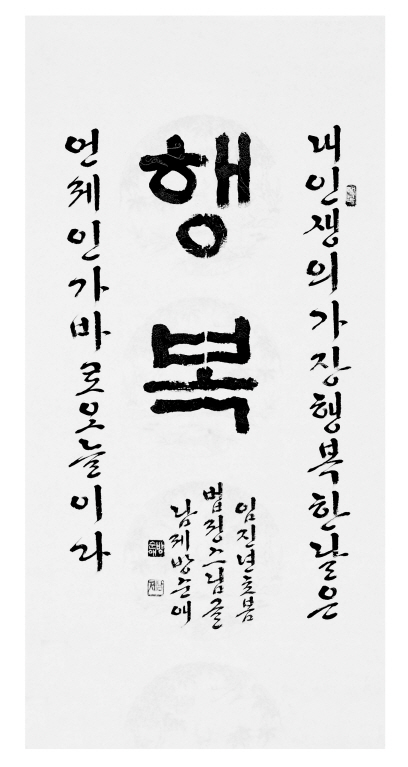 내인생의가장행복한날은
행복
언제인가바로오늘이라
임진년초봄
법정스님글
남제방순애